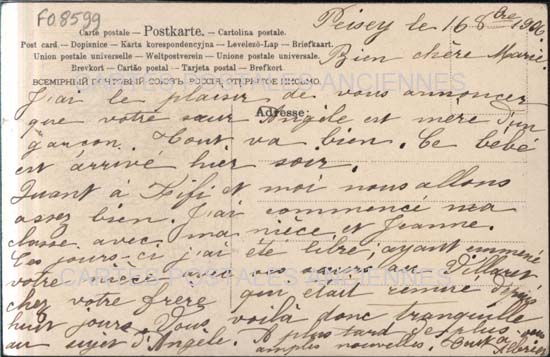 FO8599
Peisey le 16 8bre 1906
Carte postale — Postkarte. — Cartolina postale.
Post card — Dopisnice — Karta korespondencyjna — Levelező-Lap — Briefkaart.
Union postale universelle — Weltpostverein — Unione postale universale.
Brevkort — Cartão postal — Tarjeta postal — Brefkort
ВСЕМІРНЫЙ ПОЧТОВЫЙ СОЮЗЪ. РОССІЯ. ОТКРЫТОЕ ПИСЬМО.
Bien chère Marie.
CARTES POSTALES ANCIENNES
J'ai le plaisir de vous annoncer
que votre sœur Angèle est mère d'un
Adresse:
garçon. Tout va bien. Ce bébé
est arrivé hier soir.
Quant à Fifi et moi nous allons
assez bien. J'ai commencé ma
classe avec ma nièce et Jeanne.
Ces jours ci j'ai été libre, ayant emmené
votre nièce avec vos sœurs au Villaret
CARTES POSTALES ANCIENNES
chez votre frère qui était
huit jours. Vous voilà donc tranquille
au sujet d'Angèle. A plus tard de plus
amples nouvelles. Tout à vous